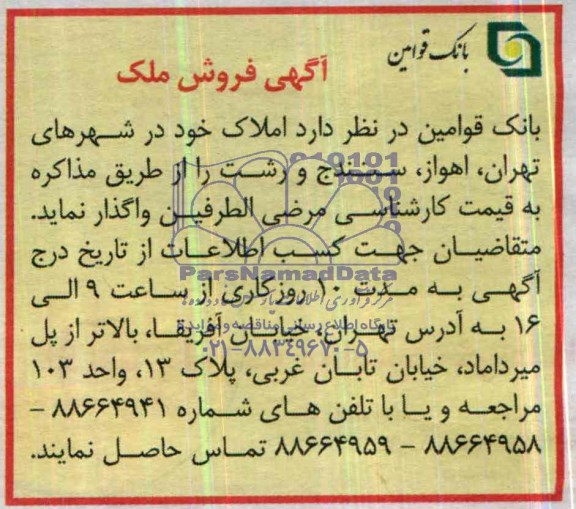 بانک قوامین
آگهی فروش ملک
بانک قوامین در نظر دارد املاک خود در شهرهای
تهران، اهواز، سنندج و رشت را از طریق مذاکره
به قیمت کارشناسی مرضی الطرفین واگذار نماید.
متقاضیان جهت کسب اطلاعات از تاریخ درج
آگهی به مدت ۱۰ روز کاری از ساعت ۹ الی
۱۶ به آدرس تهران، خیابان آفریقا، بالاتر از پل
میرداماد، خیابان تابان غربی، پلاک ۱۳، واحد ۱۰۳
مراجعه و یا با تلفن های شماره ۸۸۶۶۴۹۴۱ –
۸۸۶۶۴۹۵۸ – ۸۸۶۶۴۹۵۹ تماس حاصل نمایند.
ParsNamadData
پایگاه اطلاع رسانی مناقصه و مزایده
۰۲۱-۸۸۳۴۹۶۷۰-۵